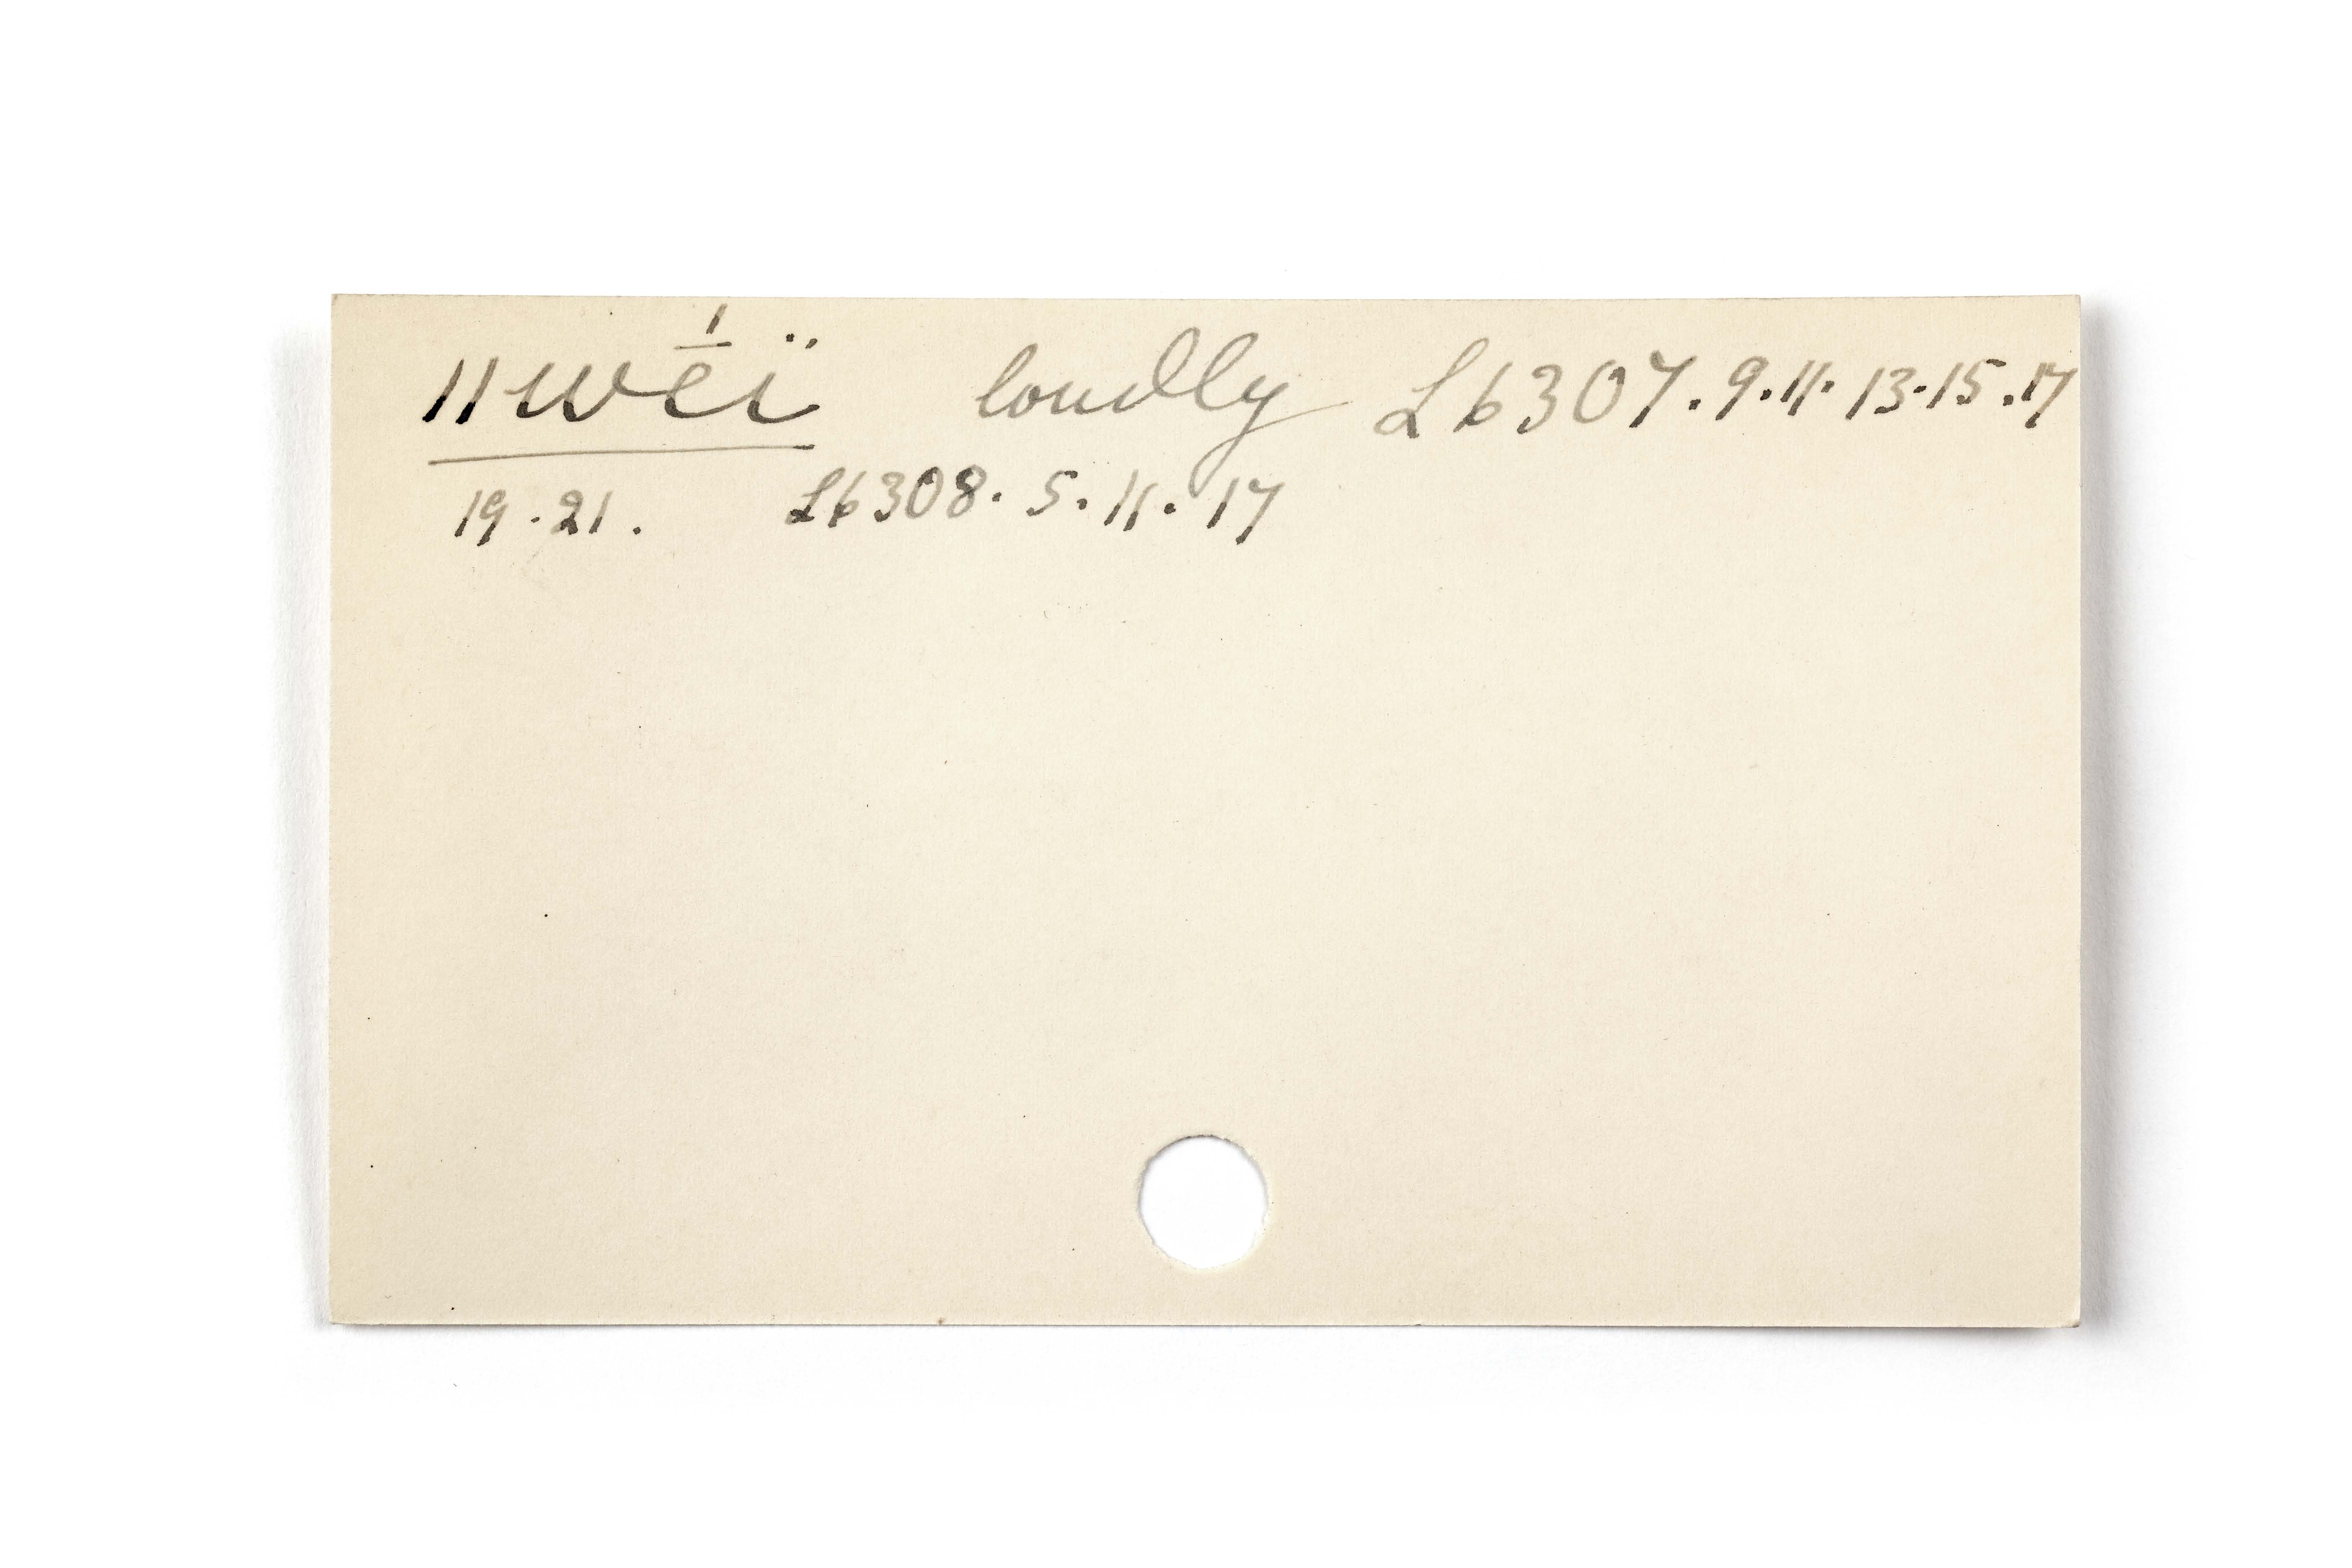 ǁwḗï loudly L6307.9.11.13.15.17
19.21. L6308.5.11.17